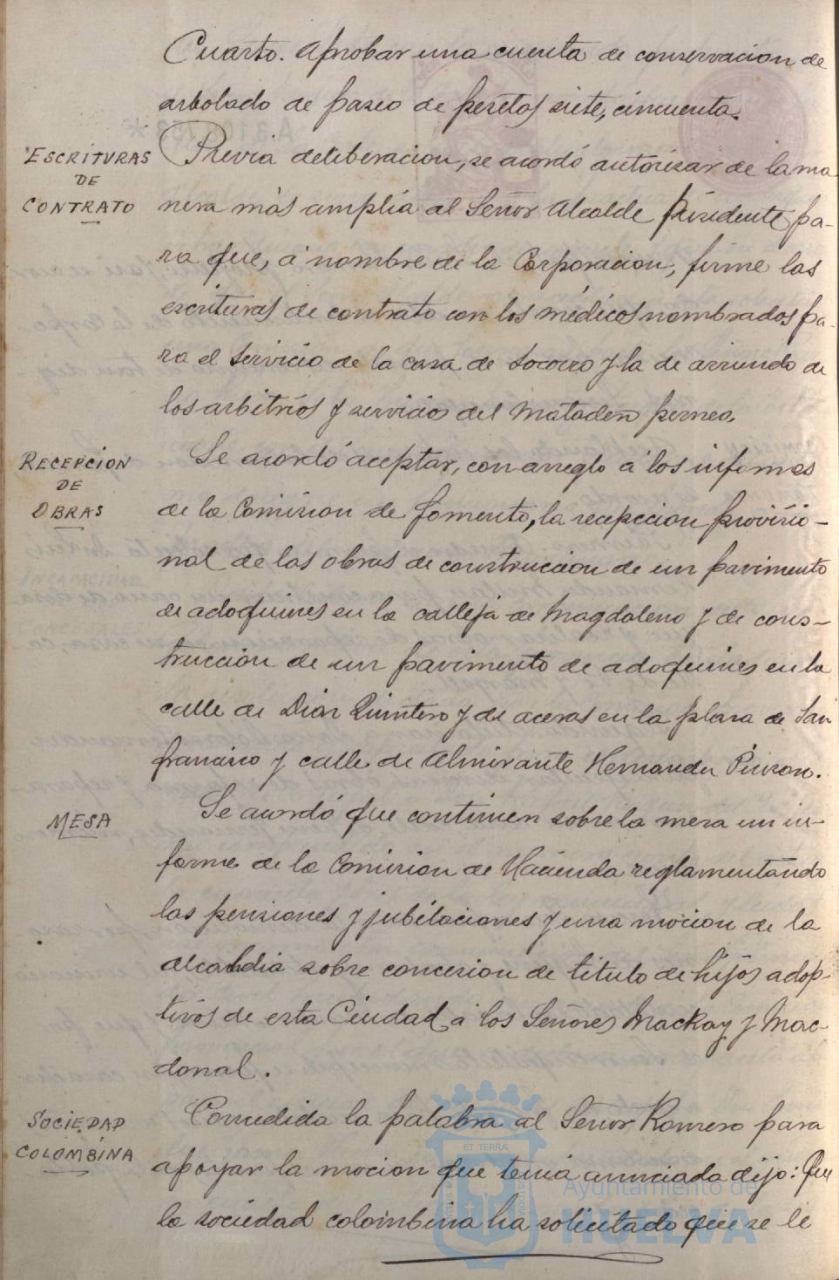 Cuarto. Aprobar una cuenta de conservacion de
arbolado de paseo de pesetas siete, cincuenta.
ESCRITURAS
DE
CONTRATO
Previa deliberacion, se acordó autorizar de la ma
nera más amplia al Señor Alcalde Presidente pa-
ra que, á nombre de la Corporacion, firme las
escrituras de contrato con los médicos nombrados pa-
ra el servicio de la casa de socorro y la de arriendo de
los arbitrios y servicios del Matadero
RECEPCION
DE
OBRAS
Se acordó aceptar, con arreglo á los informes
de la Comision de fomento, la recepcion provisio-
nal de las obras de construccion de un pavimento
de adoquines en la calleja de Magdaleno y de cons-
trucción de un pavimento de adoquines en la
calle de Dias Quintero y de aceras en la plaza de San
francisco y calle de Almirante Hernandez Pinzon.
MESA
Se acordó que continuen sobre la mesa un in-
forme de la Comision de Hacienda reglamentando
las pensiones y jubilaciones y una mocion de la
alcaldia sobre concesion de titulo de hijos adop-
tivos de esta Ciudad á los Señores Mackay y Mac-
donal.
SOCIEDAD
COLOMBINA
Concedida la palabra al Señor Romero para
apoyar la mocion que tenia anunciada dijo: Que
la sociedad colombina ha solicitado que se le
Ayuntamiento de
HUELVA